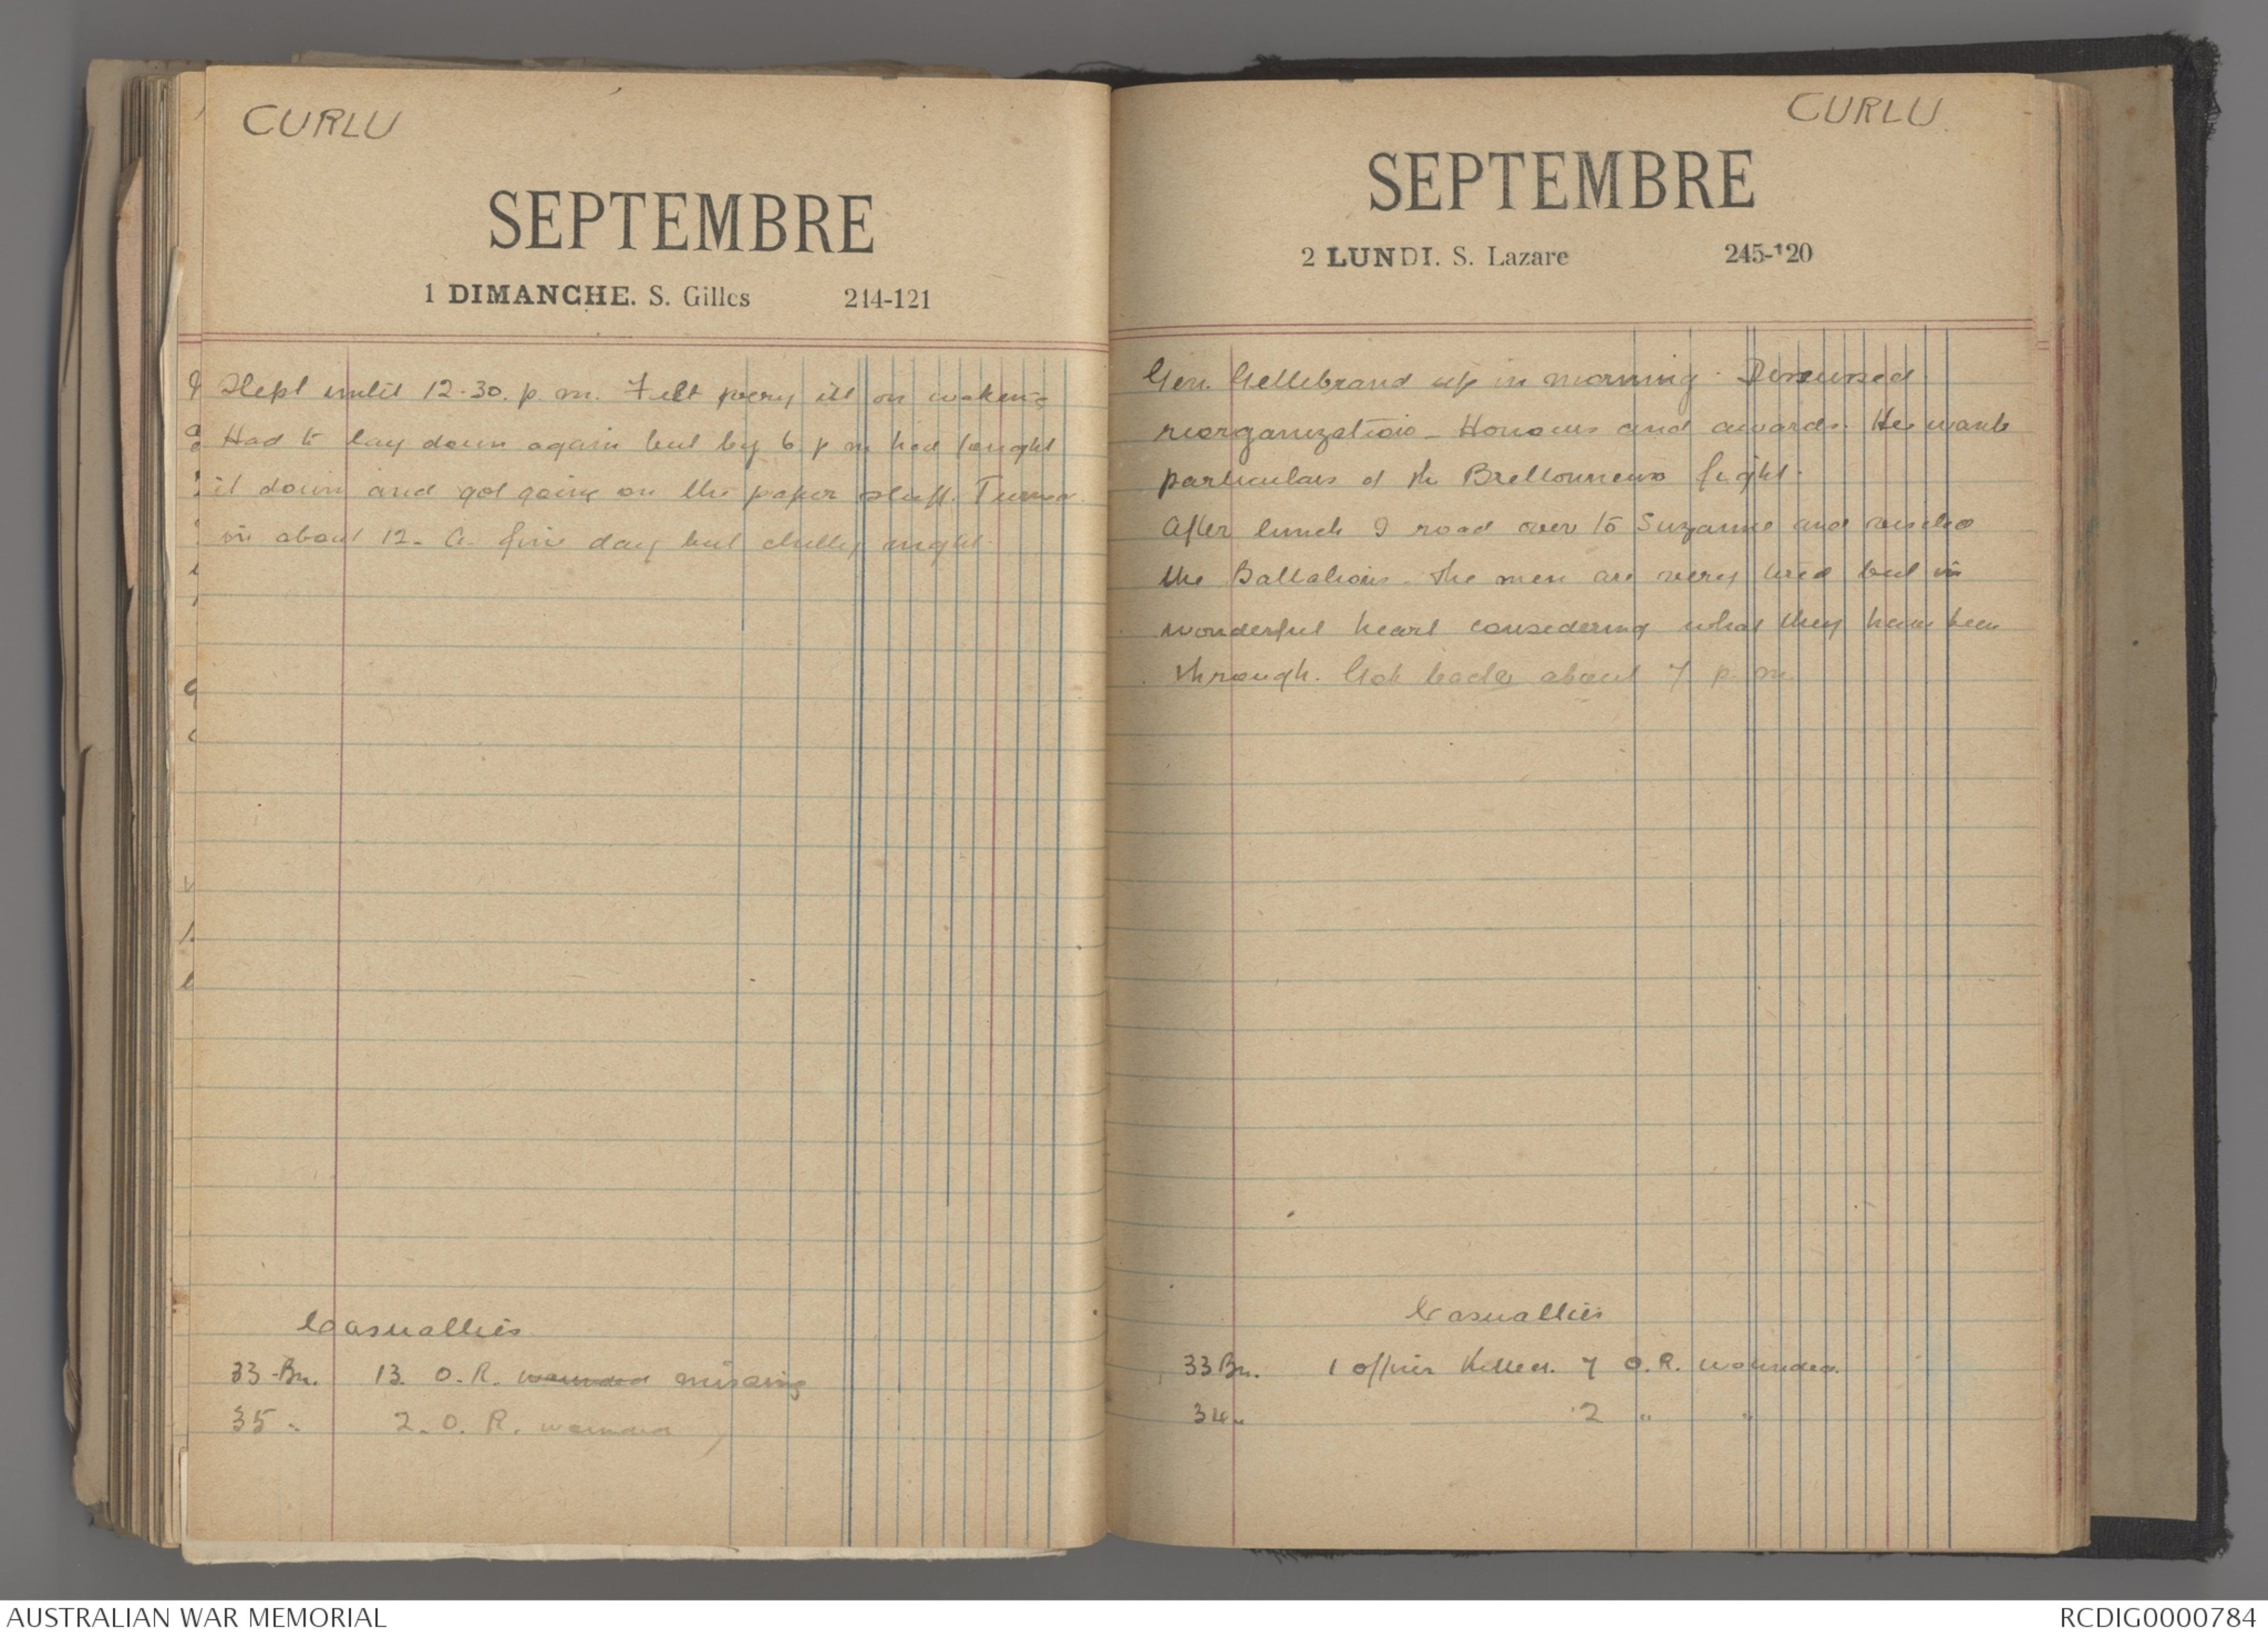 CURLU
SEPTEMBRE
1 DIMANCHE. S. Gilles 244-121
Slept until 12-30. p. m. Felt very ill on waking
Had to lay down again but by 6 p m had fought
it down and got going on the paper stuff. Turned
in about 12. A fine day but chilly night.
Casualties
33 Bn. 13. O. R. wounded missing
35 " 2. O. R. wounded
CURLU.
SEPTEMBRE
2 LUNDI. S. Lazare 245-120
Gen. Gellibrand up in morning. Discussed
reorganization - Honours and awards. He wants
particulars of the Bretonneux fight.
After lunch I road over to Suzanne and visited
the Battalions. The men are very tired but in
wonderful heart considering what they have been
through. Got back about 7 p. m.
Casualties
33 Bn. 1 officer Killed. 7 O. R. wounded.
34 " 2 " "
AUSTRALIAN WAR MEMORIAL
RCDIG0000784